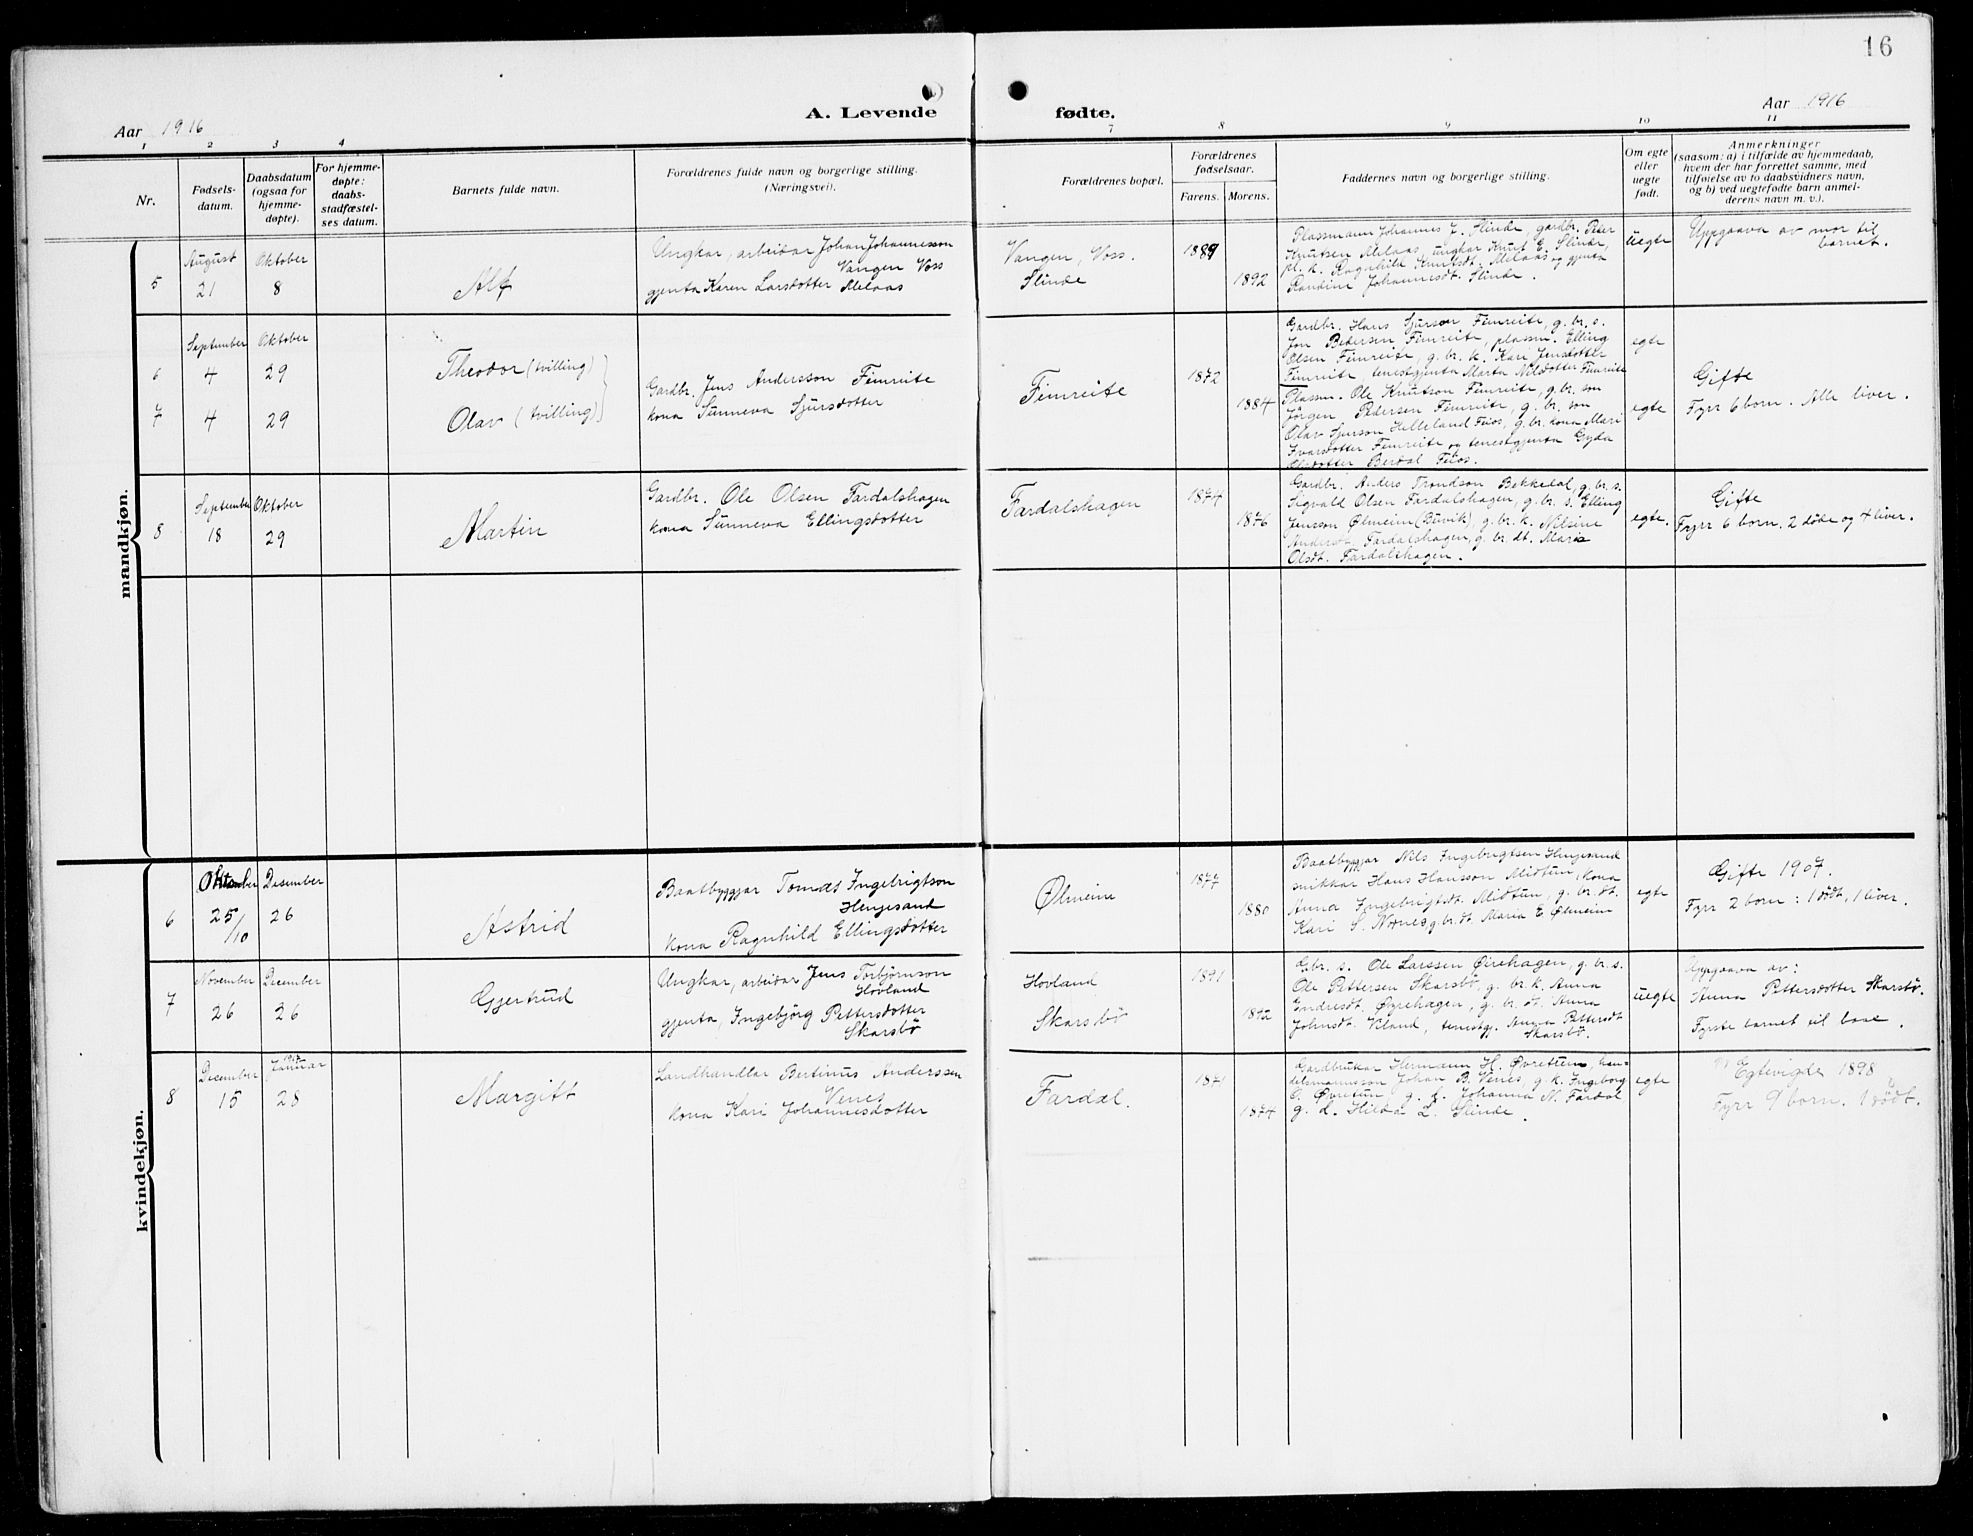 16
Aar 1916
A. Levende
fødte.
Aar 1916
1 2 3 4
7 8 9 10 11
Nr.
Fødsels-
datum.
Daabsdatum
(ogsaa for
hjemme-
døpte).
For hjemme-
døpte:
daabs-
stadfæstel-
ses datum.
Barnets fulde navn.
Forældrenes fulde navn og borgerlige stilling.
(Næringsvei).
Forældrenes bopæl.
Forældrenes
fødselsaar.
Farens. Morens.
Faddernes navn og borgerlige stilling.
Om egte
eller
uegte
født.
Anmerkninger
(saasom: a) i tilfælde av hjemmedaab,
hvem der har forrettet samme, med
tilføielse av to daabsvidners navn,
og b) ved uegtefødte barn anmel-
derens navn m. v.).
mandkjøn.
5
August
21
Oktober
8
Alf
Ungkar, arbeidar Johan Johannesson
Vangen Voss
gjenta Karen Larsdotter Melaas
Vangen, Voss.
Slinde
1889
1892
Plassmann Johannes J. Slinde, gardbr. Peder
Knutsen Melaas, ungkar Knut E. Slinde,
pl. k. Ragnhild Knutsdt. Melaas og gjenta
Randine Johannesdt. Slinde.
uegte
Uppgaava av mor til
barnet.
September Oktober
6 4 29
Theodor (tvilling)
7 4 29
Olav (tvilling)
Gardbr. Jens Andersson Fimreite
kona Sunneva Sjursdotter
Fimreite
1872
1884
Gardbr. Hans Sjurson Fimreite, g. br. s.
Jon Pedersen Fimreite, plassm. Elling
Olsen Fimreite, g. br. k. Kari Jensdotter
Fimreite, tenestgjenta Marta Nilsdotter Fimreite
Plassm. Ole Knutson Fimreite, g. br. son
Jörgen Pedersen Fimreite, g. br. son
Olav Sjurson Helleland Feios, g. br. kona Mari
Ivarsdotter Fimreite og tenestgjenta Gyda
Olsdotter Berdal Feios.
egte
egte
Gifte
Fyrr 6 born. Alle liver.
8
September Oktober
18 29
Martin
Gardbr. Ole Olsen Fardalshagen
kona Sunneva Ellingsdotter
Fardalshagen
1874
1876
Gardbr. Anders Trondson Bekkedal, g. br. s.
Sigvald Olsen Fardalshagen, g. br. s. Elling
Jensson Ølmeim (Buvik), g. br. k. Nilsine
Andersdt. Fardalshagen, g. br. dt. Maria
Olsdt. Fardalshagen.
egte.
Gifte
Fyrr 6 born, 2 döde og 4 liver.
kvindekjøn.
6
Oktober Desember
25/10 26
Astrid
Baatbyggjar Tomas Ingebrigtson
Hengesand
kona Ragnhild Ellingsdotter
Ølmeim
1877
1880
Baatbyggjar Nils Ingebrigtsen Hengesand
snikkar Hans Hansson Midtun, kona
Anna Ingebrigtsdt. Midtun, g. br. dt.
Kari S. Nornes g. br. dt. Maria E Ølmeim
egte
Gifte 1907.
Fyrr 2 born: 1 dödt, 1 liver.
7
November December
26 26
Gjertrud
Ungkar, arbeidar Jens Torbjörnson
Hovland
gjenta, Ingebjörg Pettersdotter
Skarsbö
Hovland
Skarsbö
1891
1892
G.br. s. Ole Larssen Øirehagen, g. br. s.
Ole Pettersen Skarsbö, g. br. k. Anna
Endresdt. Øyrehagen, g. br. dt. Anna
Johnsdt. Kland, tenestg. Anna Pettersdt
Skarsbö.
uegte
Uppgaava av:
Anna Pettersdotter Skarsbö.
Fyrste barnet til baae.
8
December 1917 Januar
15 28
Margitt
Landhandlar Bertinus Anderssen
Venes
kona Kari Johannesdotter
Fardal.
1871
1874
Gardbrukar Hermann H. Øvretun, han-
delsmannsson Johan B. Venes, g. k. Ingeborg
O. Øvretun, g. d. Johanna N. Fardal
g. d. Hilda L. Slinde.
egte
Egtevigde 1898
Fyrr 9 born. 1 dödt.